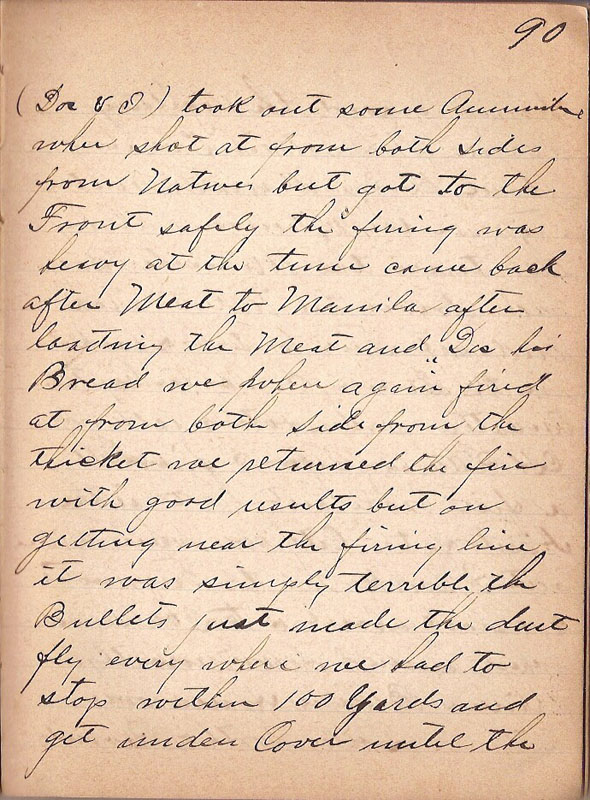 90
(Doc & I) took out some Ammunition
wher shot at from both sides
from Natives but got to the
Front safely the firing was
heavy at the time came back
after Meat to Manila after
loading the Meat and "Doc his
Bread we wher again fired"
at from both side from the
thicket we returned the fire
with good results but on
getting near the firing line
it was simply terrible the
Bullets just made the dust
fly every where we had to
stop within 100 Yards and
get under Cover until the